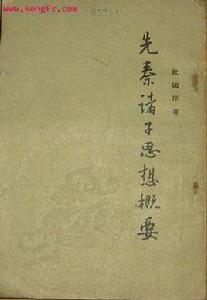 www.kongfz.com
先秦诸子思想概要
杜国庠著